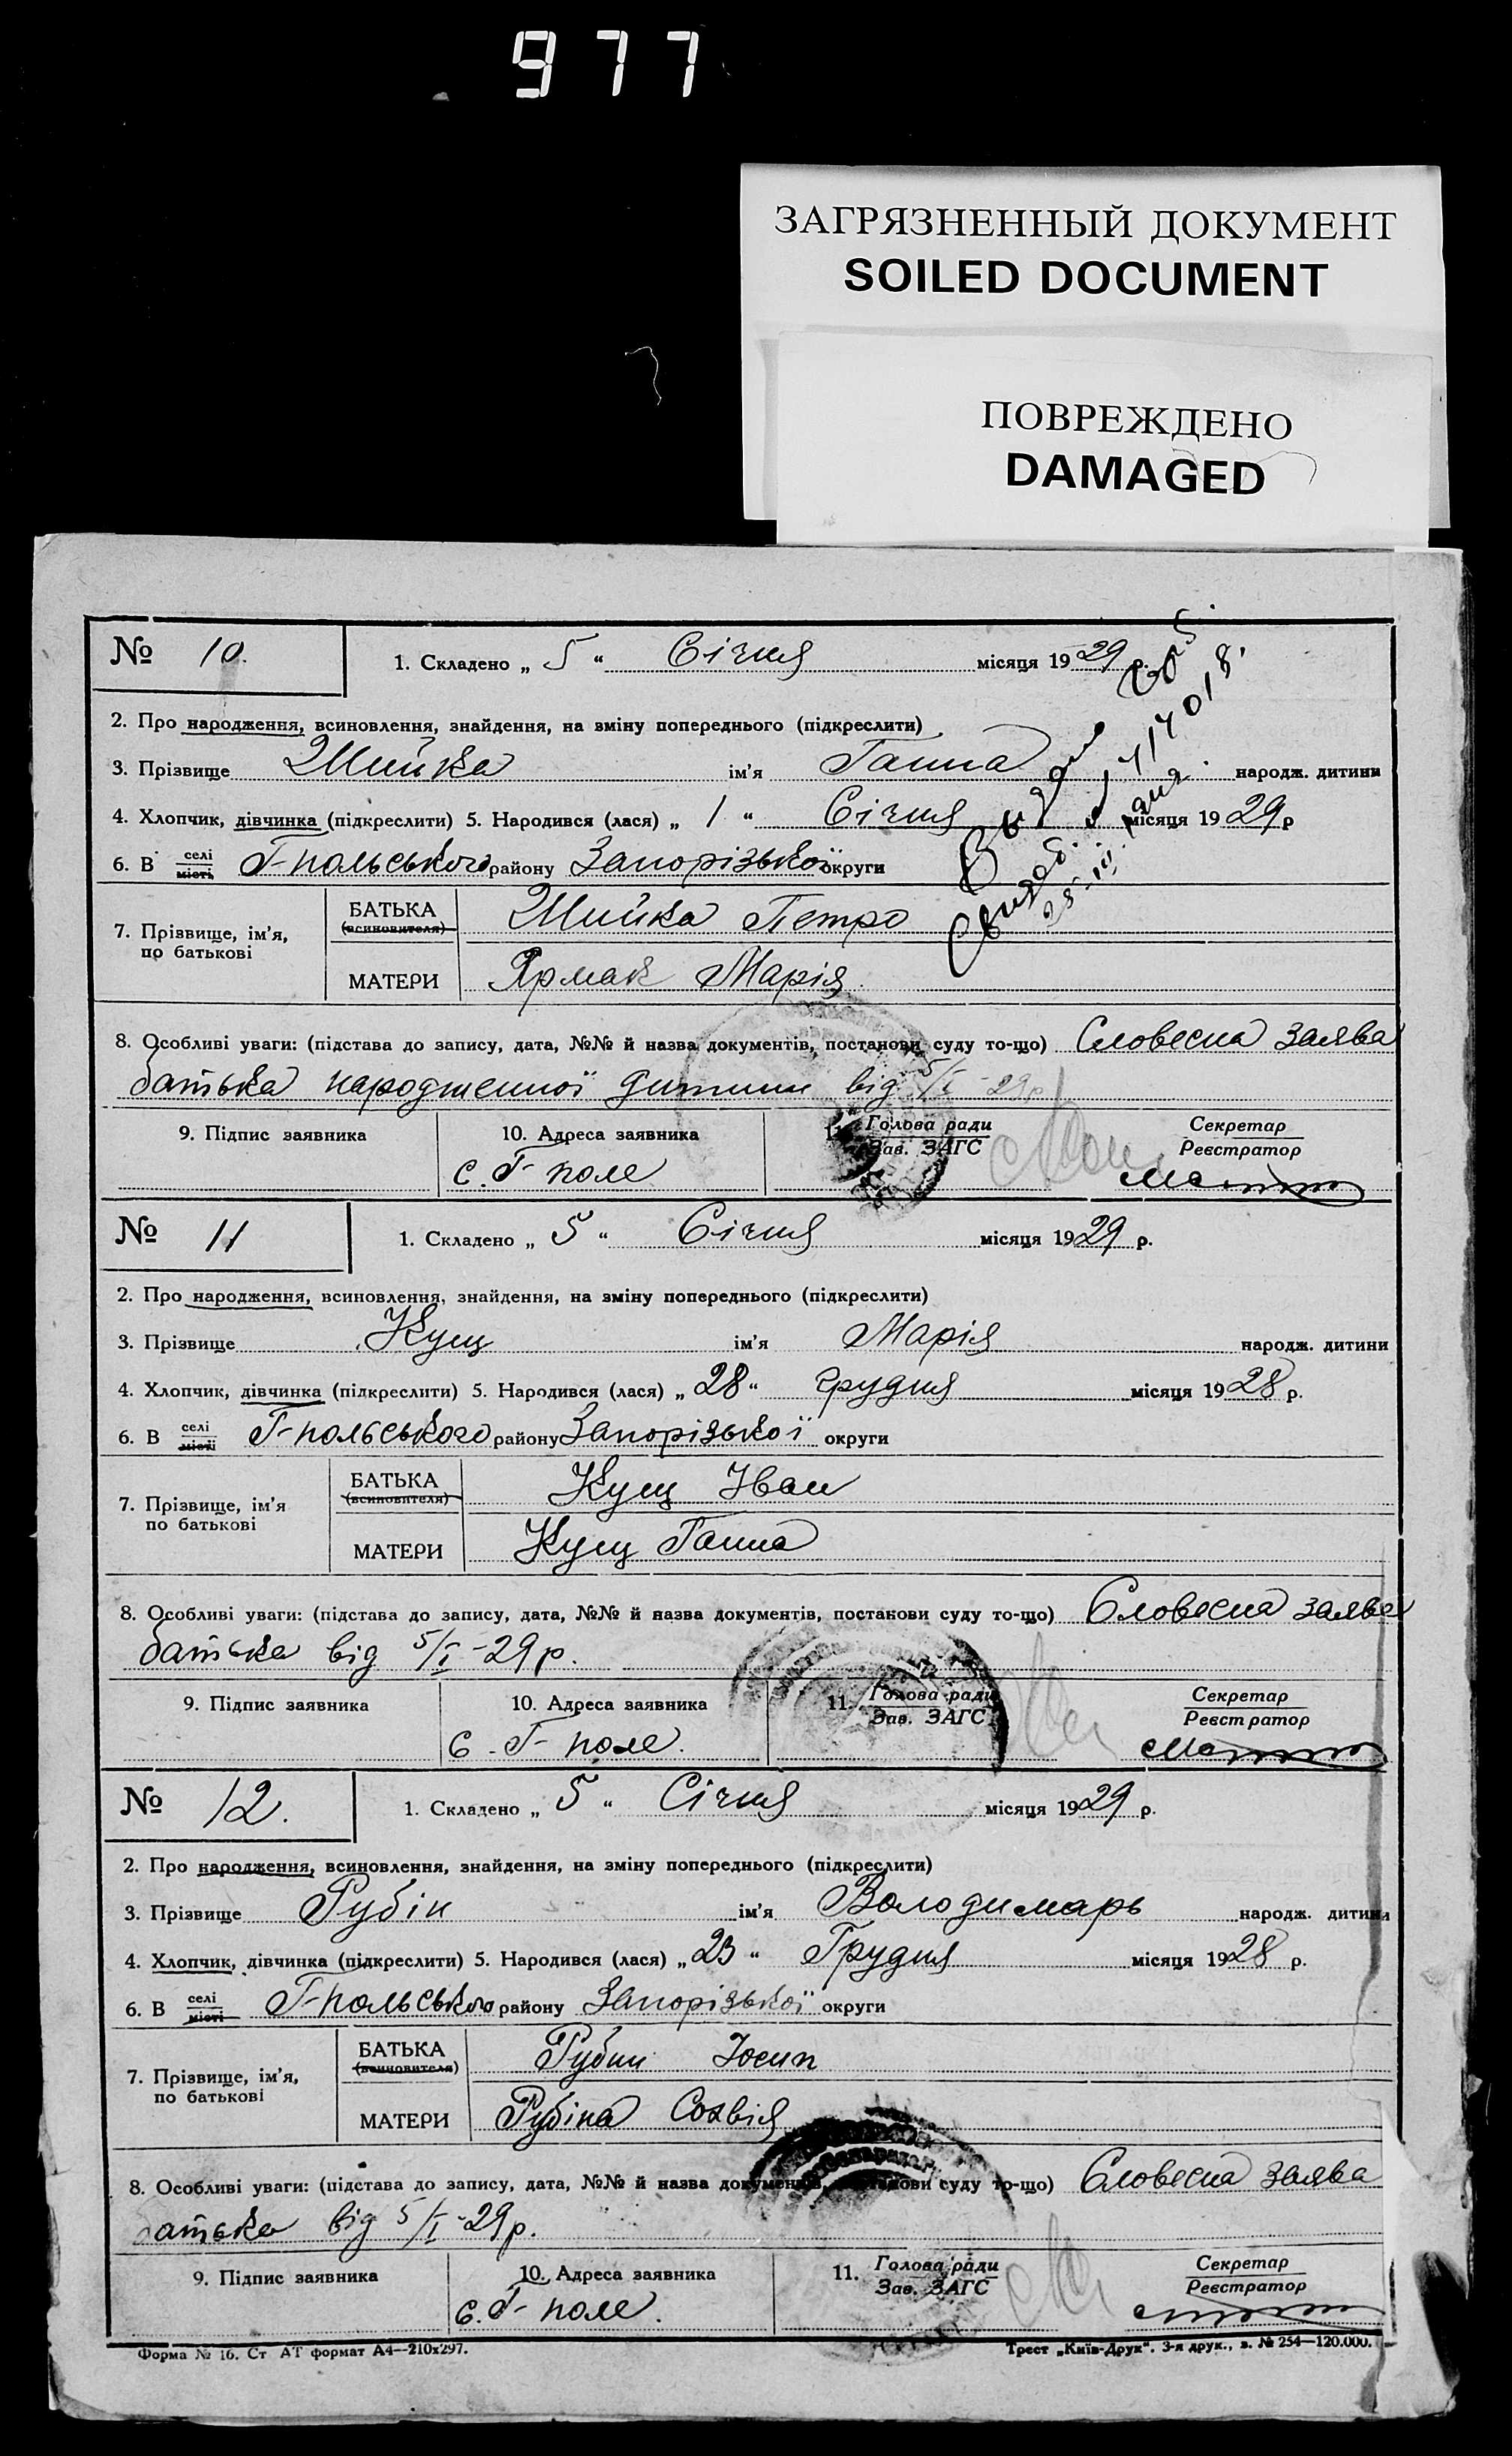 977
ЗАГРЯЗНЕННЫЙ ДОКУМЕНТ
SOILED DOCUMENT
ПОВРЕЖДЕНО
DAMAGED
№ 10. 1. Складено „ 5 “ Січня місяця 19 29 р.
2. Про народження, всиновлення, знайдення, на зміну попереднього (підкреслити)
3. Прізвище Шийка ім’я Ганна народж. дитини
4. Хлопчик, дівчинка (підкреслити) 5. Народився (лася) „ 1 “ Січня місяця 19 29 р
6. В селі місті Г-польського району Запорізької округи
7. Прізвище, ім’я, по батькові БАТЬКА (всиновителя) Шийка Петро
МАТЕРИ Ярмак Марія
8. Особливі уваги: (підстава до запису, дата, №№ й назва документів, постанови суду то-що) Словесна заява
батька народженної дитини від 5/I-29р
9. Підпис заявника 10. Адреса заявника 11. Голова ради Зав. ЗАГС Секретар Реєстратор
с. Г-поле
№ 11 1. Складено „ 5 “ Січня місяця 19 29 р.
2. Про народження, всиновлення, знайдення, на зміну попереднього (підкреслити)
3. Прізвище Кущ ім’я Марія народж. дитини
4. Хлопчик, дівчинка (підкреслити) 5. Народився (лася) „ 28 “ грудня місяця 19 28 р.
6. В селі місті Г-польського району Запорізької округи
7. Прізвище, ім’я по батькові БАТЬКА (всиновителя) Кущ Іван
МАТЕРИ Кущ Ганна
8. Особливі уваги: (підстава до запису, дата, №№ й назва документів, постанови суду то-що) Словесна заява
батька від 5/I-29р.
9. Підпис заявника 10. Адреса заявника 11. Голова ради Зав. ЗАГС Секретар Реєстратор
с. Г-поле.
№ 12. 1. Складено „ 5 “ Січня місяця 19 29 р.
2. Про народження, всиновлення, знайдення, на зміну попереднього (підкреслити)
3. Прізвище Рубін ім’я Володимарь народж. дитини
4. Хлопчик, дівчинка (підкреслити) 5. Народився (лася) „ 23 “ Грудня місяця 19 28 р.
6. В селі місті Г-польського району Запорізької округи
7. Прізвище, ім’я, по батькові БАТЬКА (всиновителя) Рубин Іосип
МАТЕРИ Рубіна Созвія
8. Особливі уваги: (підстава до запису, дата, №№ й назва документів, постанови суду то-що) Словесна заява
батька від 5/I-29р.
9. Підпис заявника 10. Адреса заявника 11. Голова ради Зав. ЗАГС Секретар Реєстратор
с. Г-поле.
Форма № 16. Ст АТ формат А4—210х297. Трест „Київ-Друк“. 3-я друк., з. № 254—120.000.